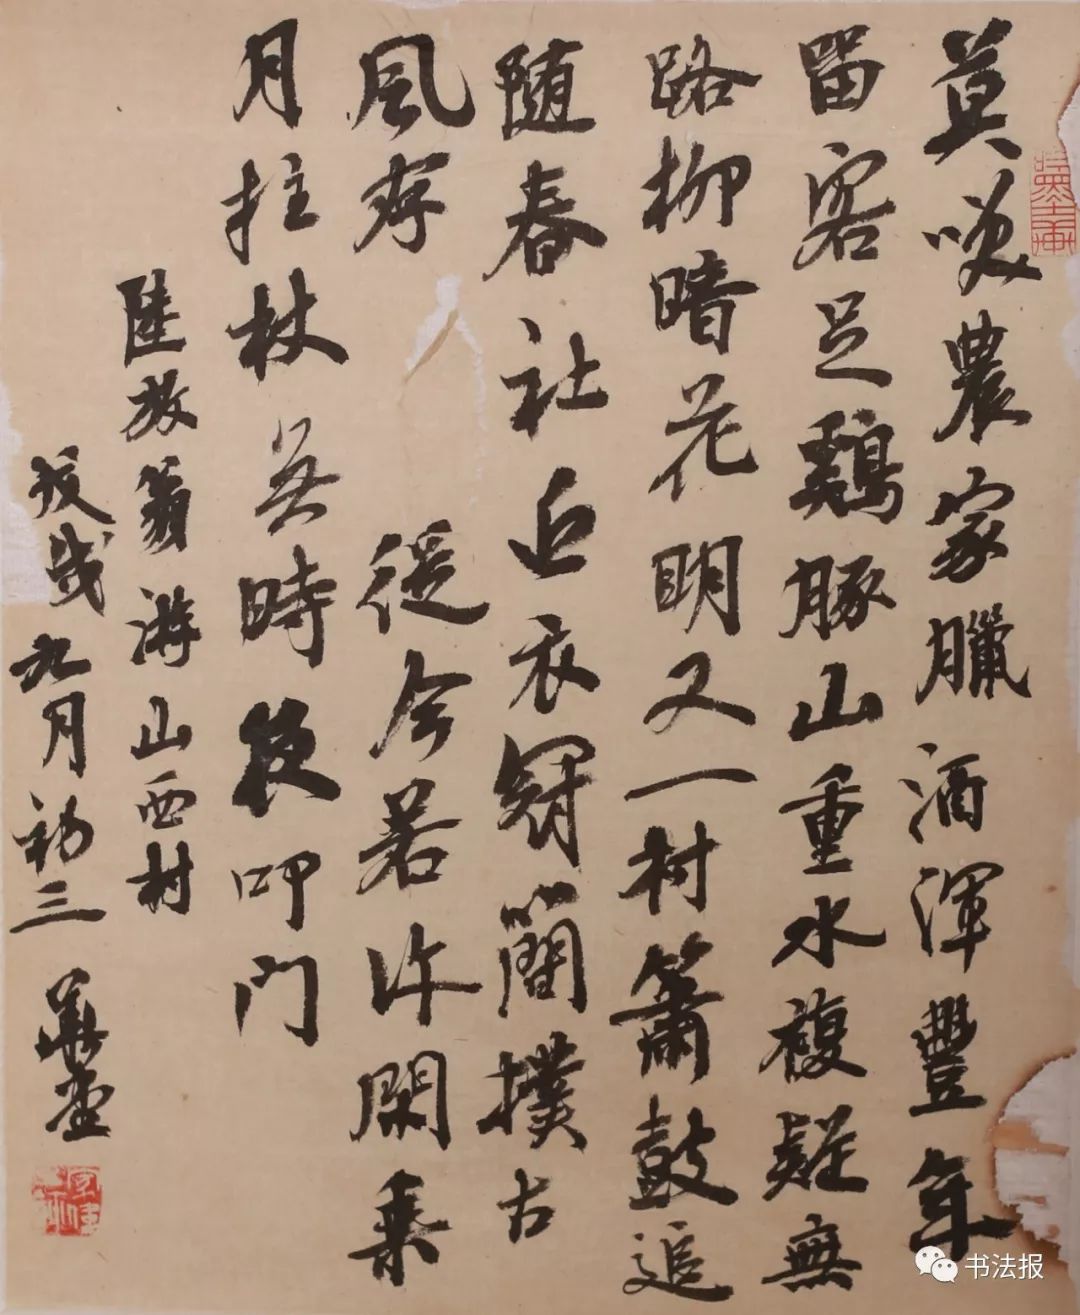 莫咲農家臘酒渾豐年
留客足鷄豚山重水複疑無
路柳暗花明又一村簫鼓追
随春社近衣冠簡撲古
風存從今若许閑乘
月拄杖無時夜叩门
陸放翁游山西村
九月初三
书法报